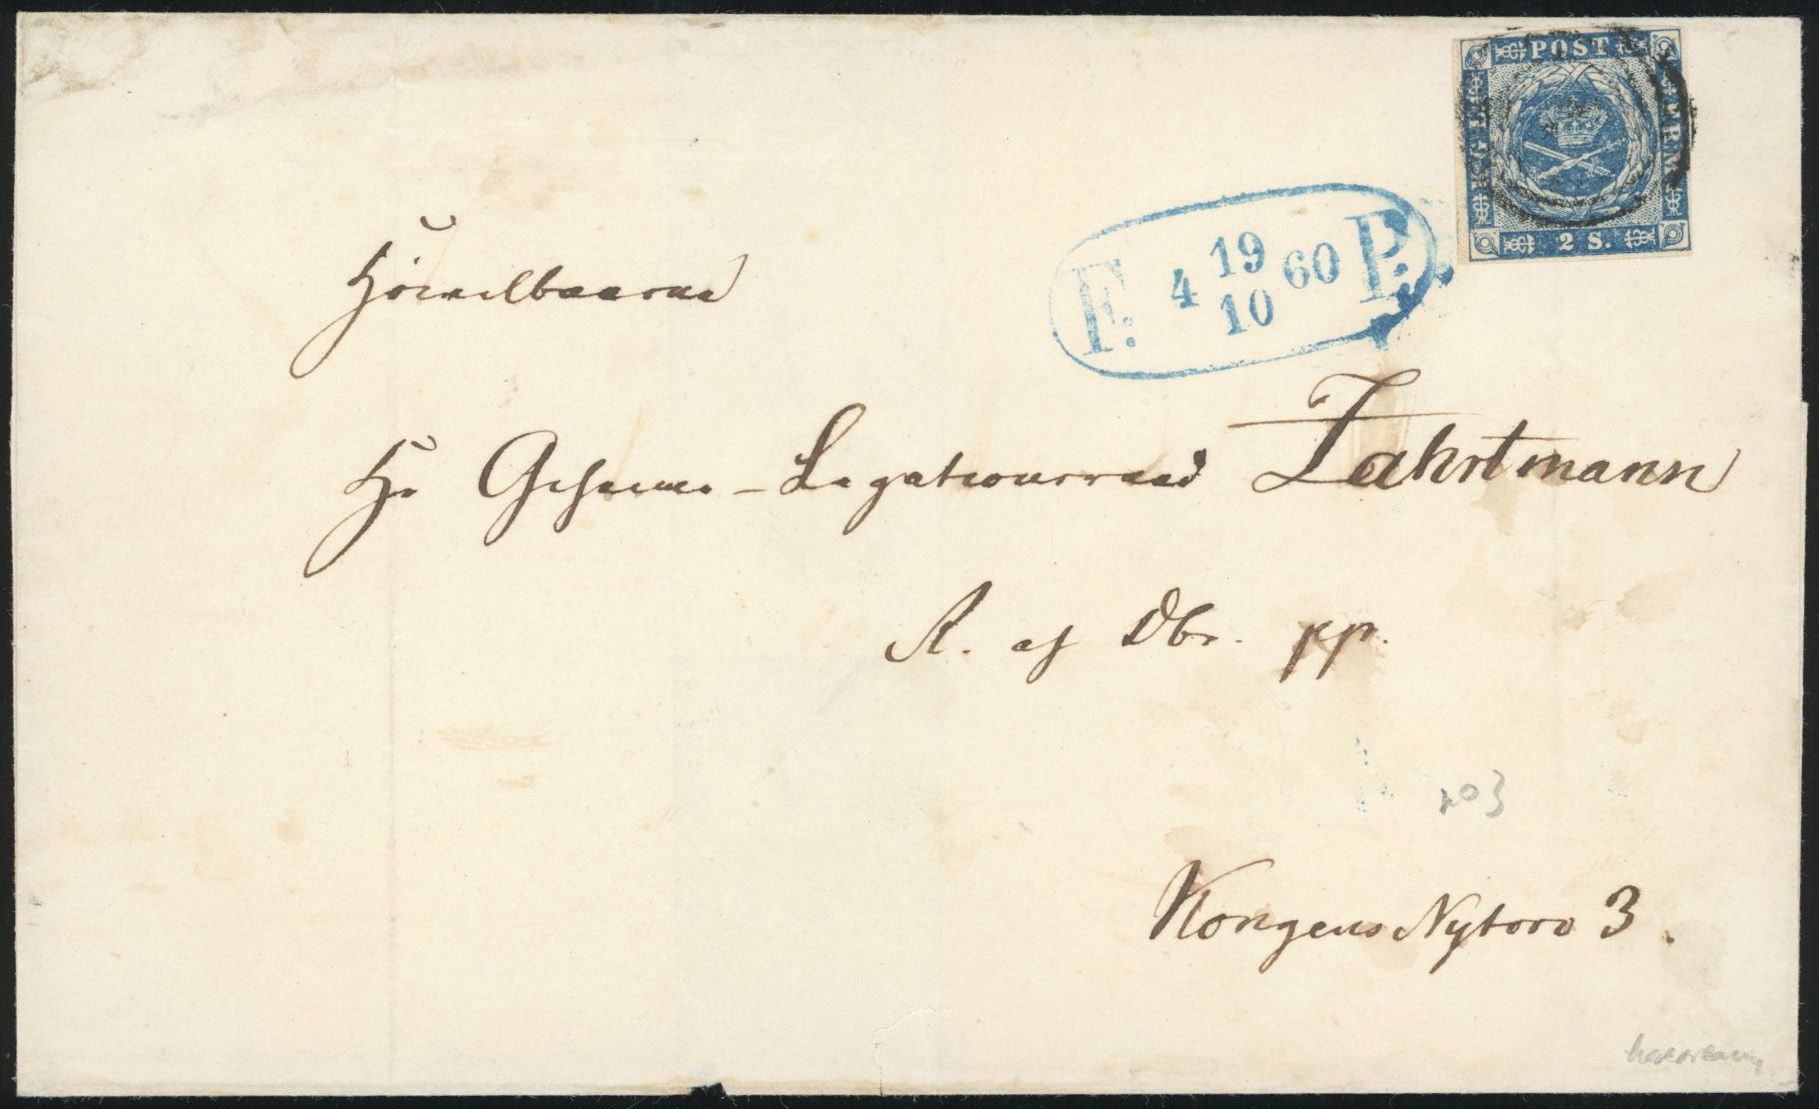 POST
KGL
FRM
2 S.
F. 4 19/10 60 P.
Høivelbaarne
Hr Geheime-Legationsraad Zahrtmann
R. af Dbr. pp.
no 3
Kongens Nytorv 3.